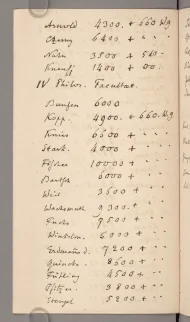 Arnold 4300. + 660 Wg
Czerny 6400 + " "
Nuhn 3500 + 560 -
Knauff 1800 + 00.
IV Philos. Facultaet.
Bunsen 6000
Kopp. 4900. + 660. Wg.
Knies 6600 + " "
Stark. 4000 + " "
Fischer 10000 + " "
Bartsch 6000 + "
Weil 3600 + " "
Wachsmuth 9300. + "
Fuchs 7500 + " "
Winkelm. 6000 + " "
Erdmannsd. 7200 + " "
Quincke 8600 + " "
Fühling 4500 + " "
Pfitzer 3800 + " "
Stengel 5200 + " "